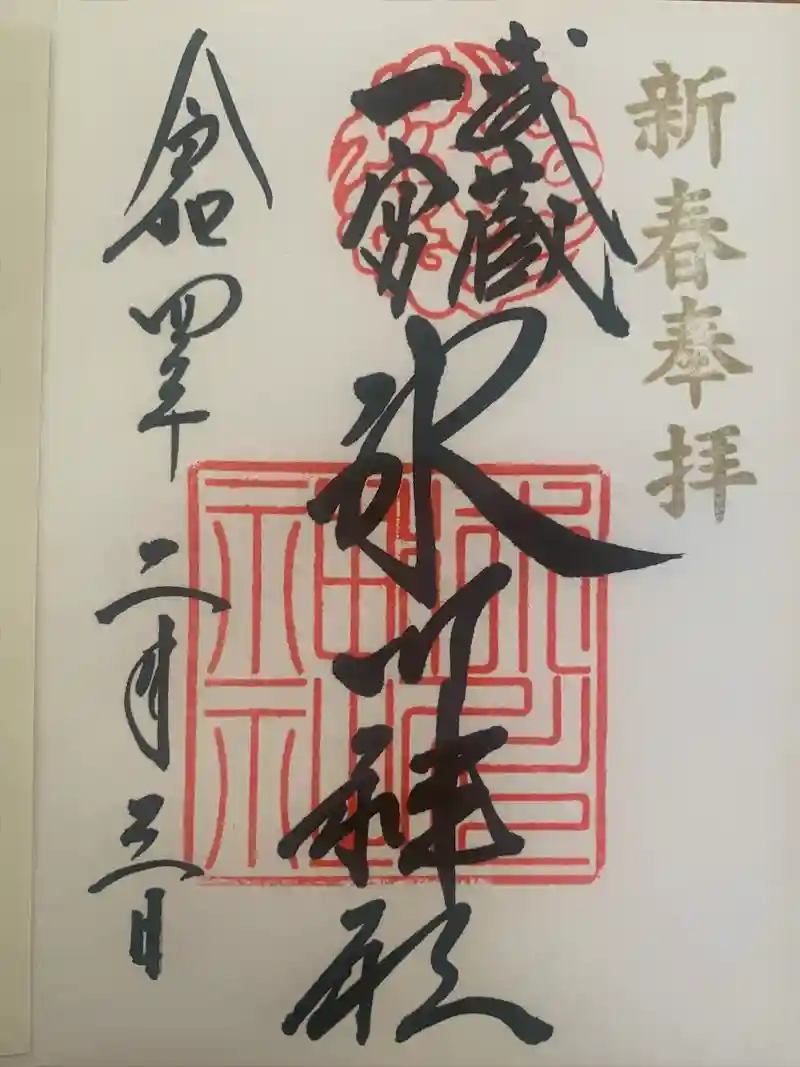 新春奉拝
武蔵
一宮
氷川神社
令和四年二月三日
氷川
神社